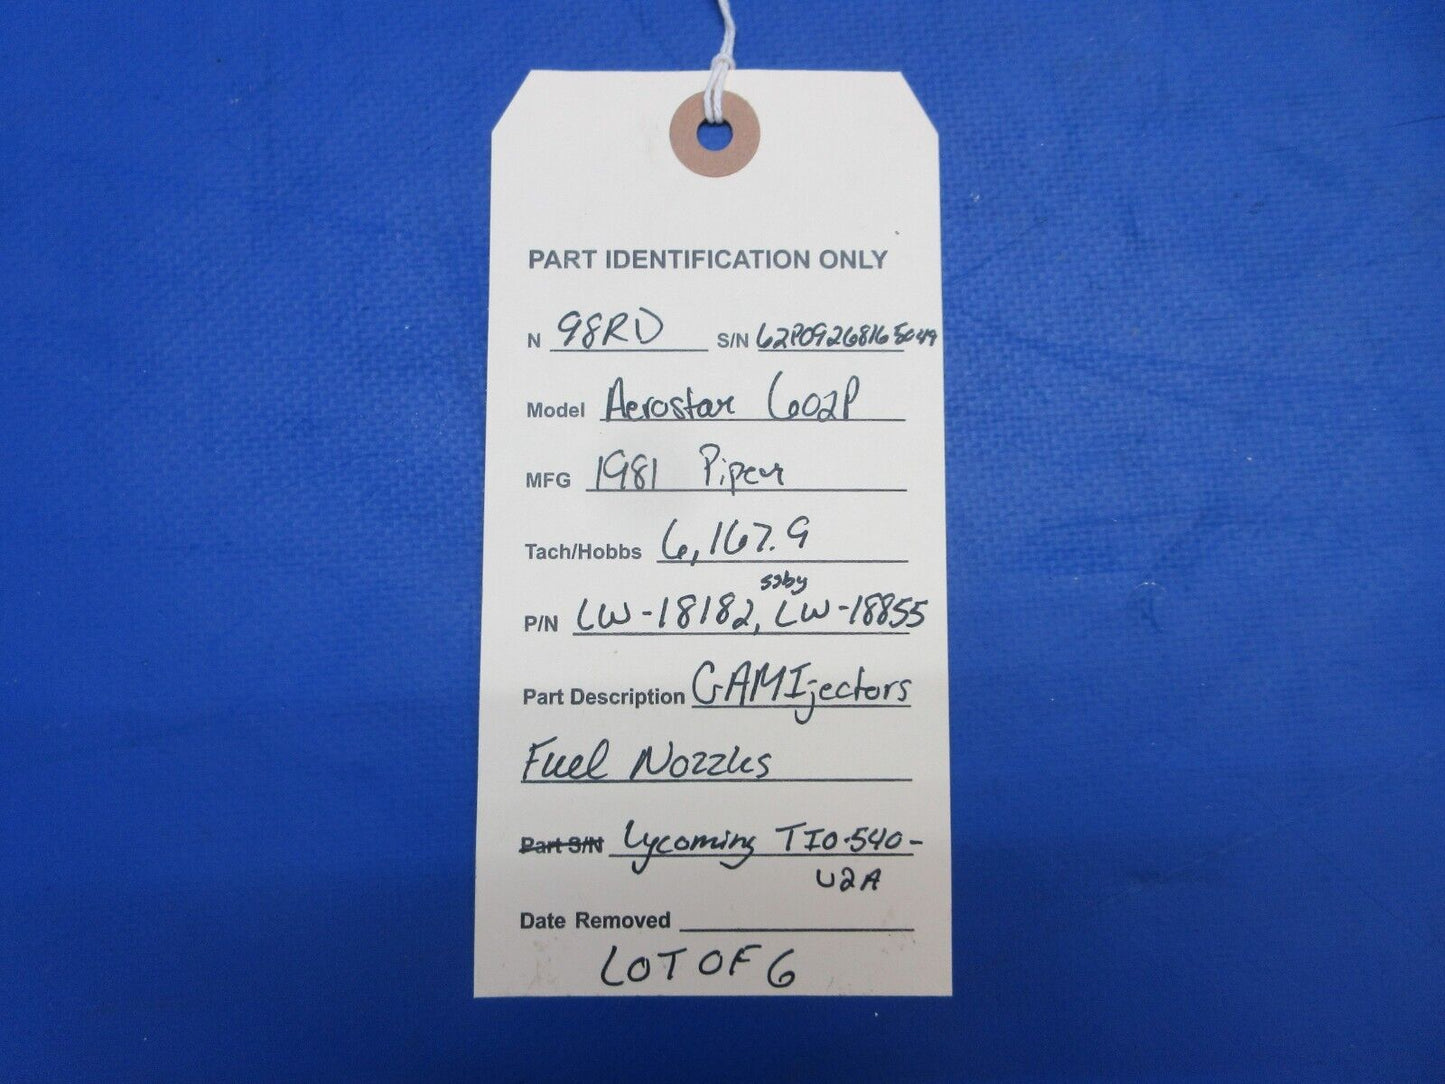 PART IDENTIFICATION ONLY
N 98RD S/N 62P09268165049
Model Aerostar 602P
MFG 1981 Piper
Tach/Hobbs 6,167.9
ssby
P/N LW-18182, LW-18855
Part Description GAMIjectors
Fuel Nozzles
Part S/N Lycoming TIO-540-
U2A
Date Removed
LOT OF 6